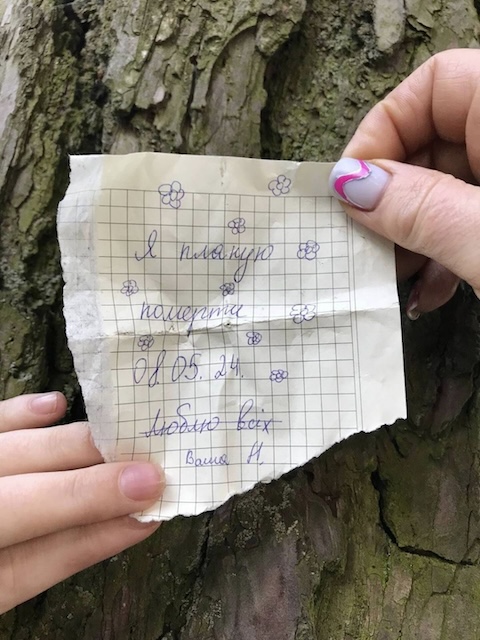 Я планую
померти
08.05.24.
Люблю всіх
Ваша Н